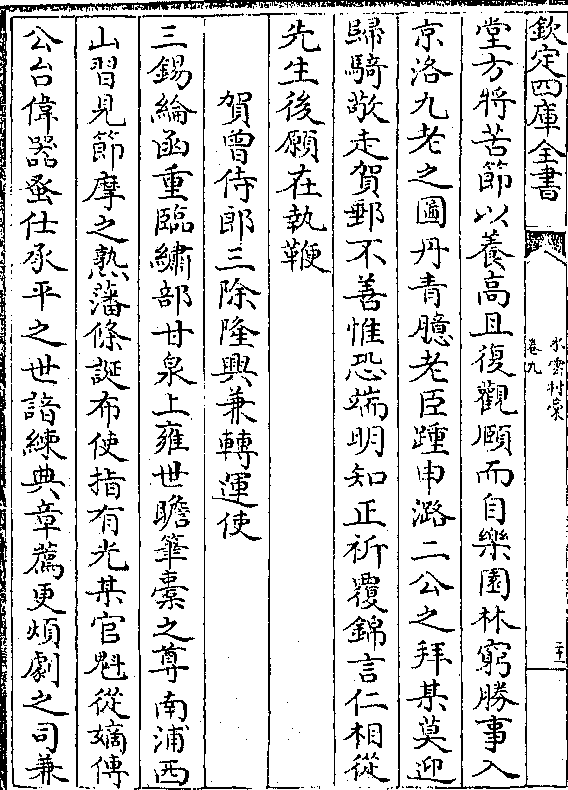 欽定四庫全書
氷雲村藁
卷九
二十一
堂方將苦節以養高且復觀頤而自樂園林窮勝事入
京洛九老之圖丹青臆老臣踵申潞二公之拜某莫迎
歸騎敢走賀郵不善惟恐端明知正祈覆錦言仁相從
先生後願在執鞭
賀曾侍郎三除隆興兼轉運使
三錫綸函重臨繡部甘泉上雍世瞻筆橐之尊南浦西
山習見節摩之熟藩條誕布使指有光某官魁從嫡傳
公台偉器蚤仕承平之世諳練典章薦更煩劇之司兼